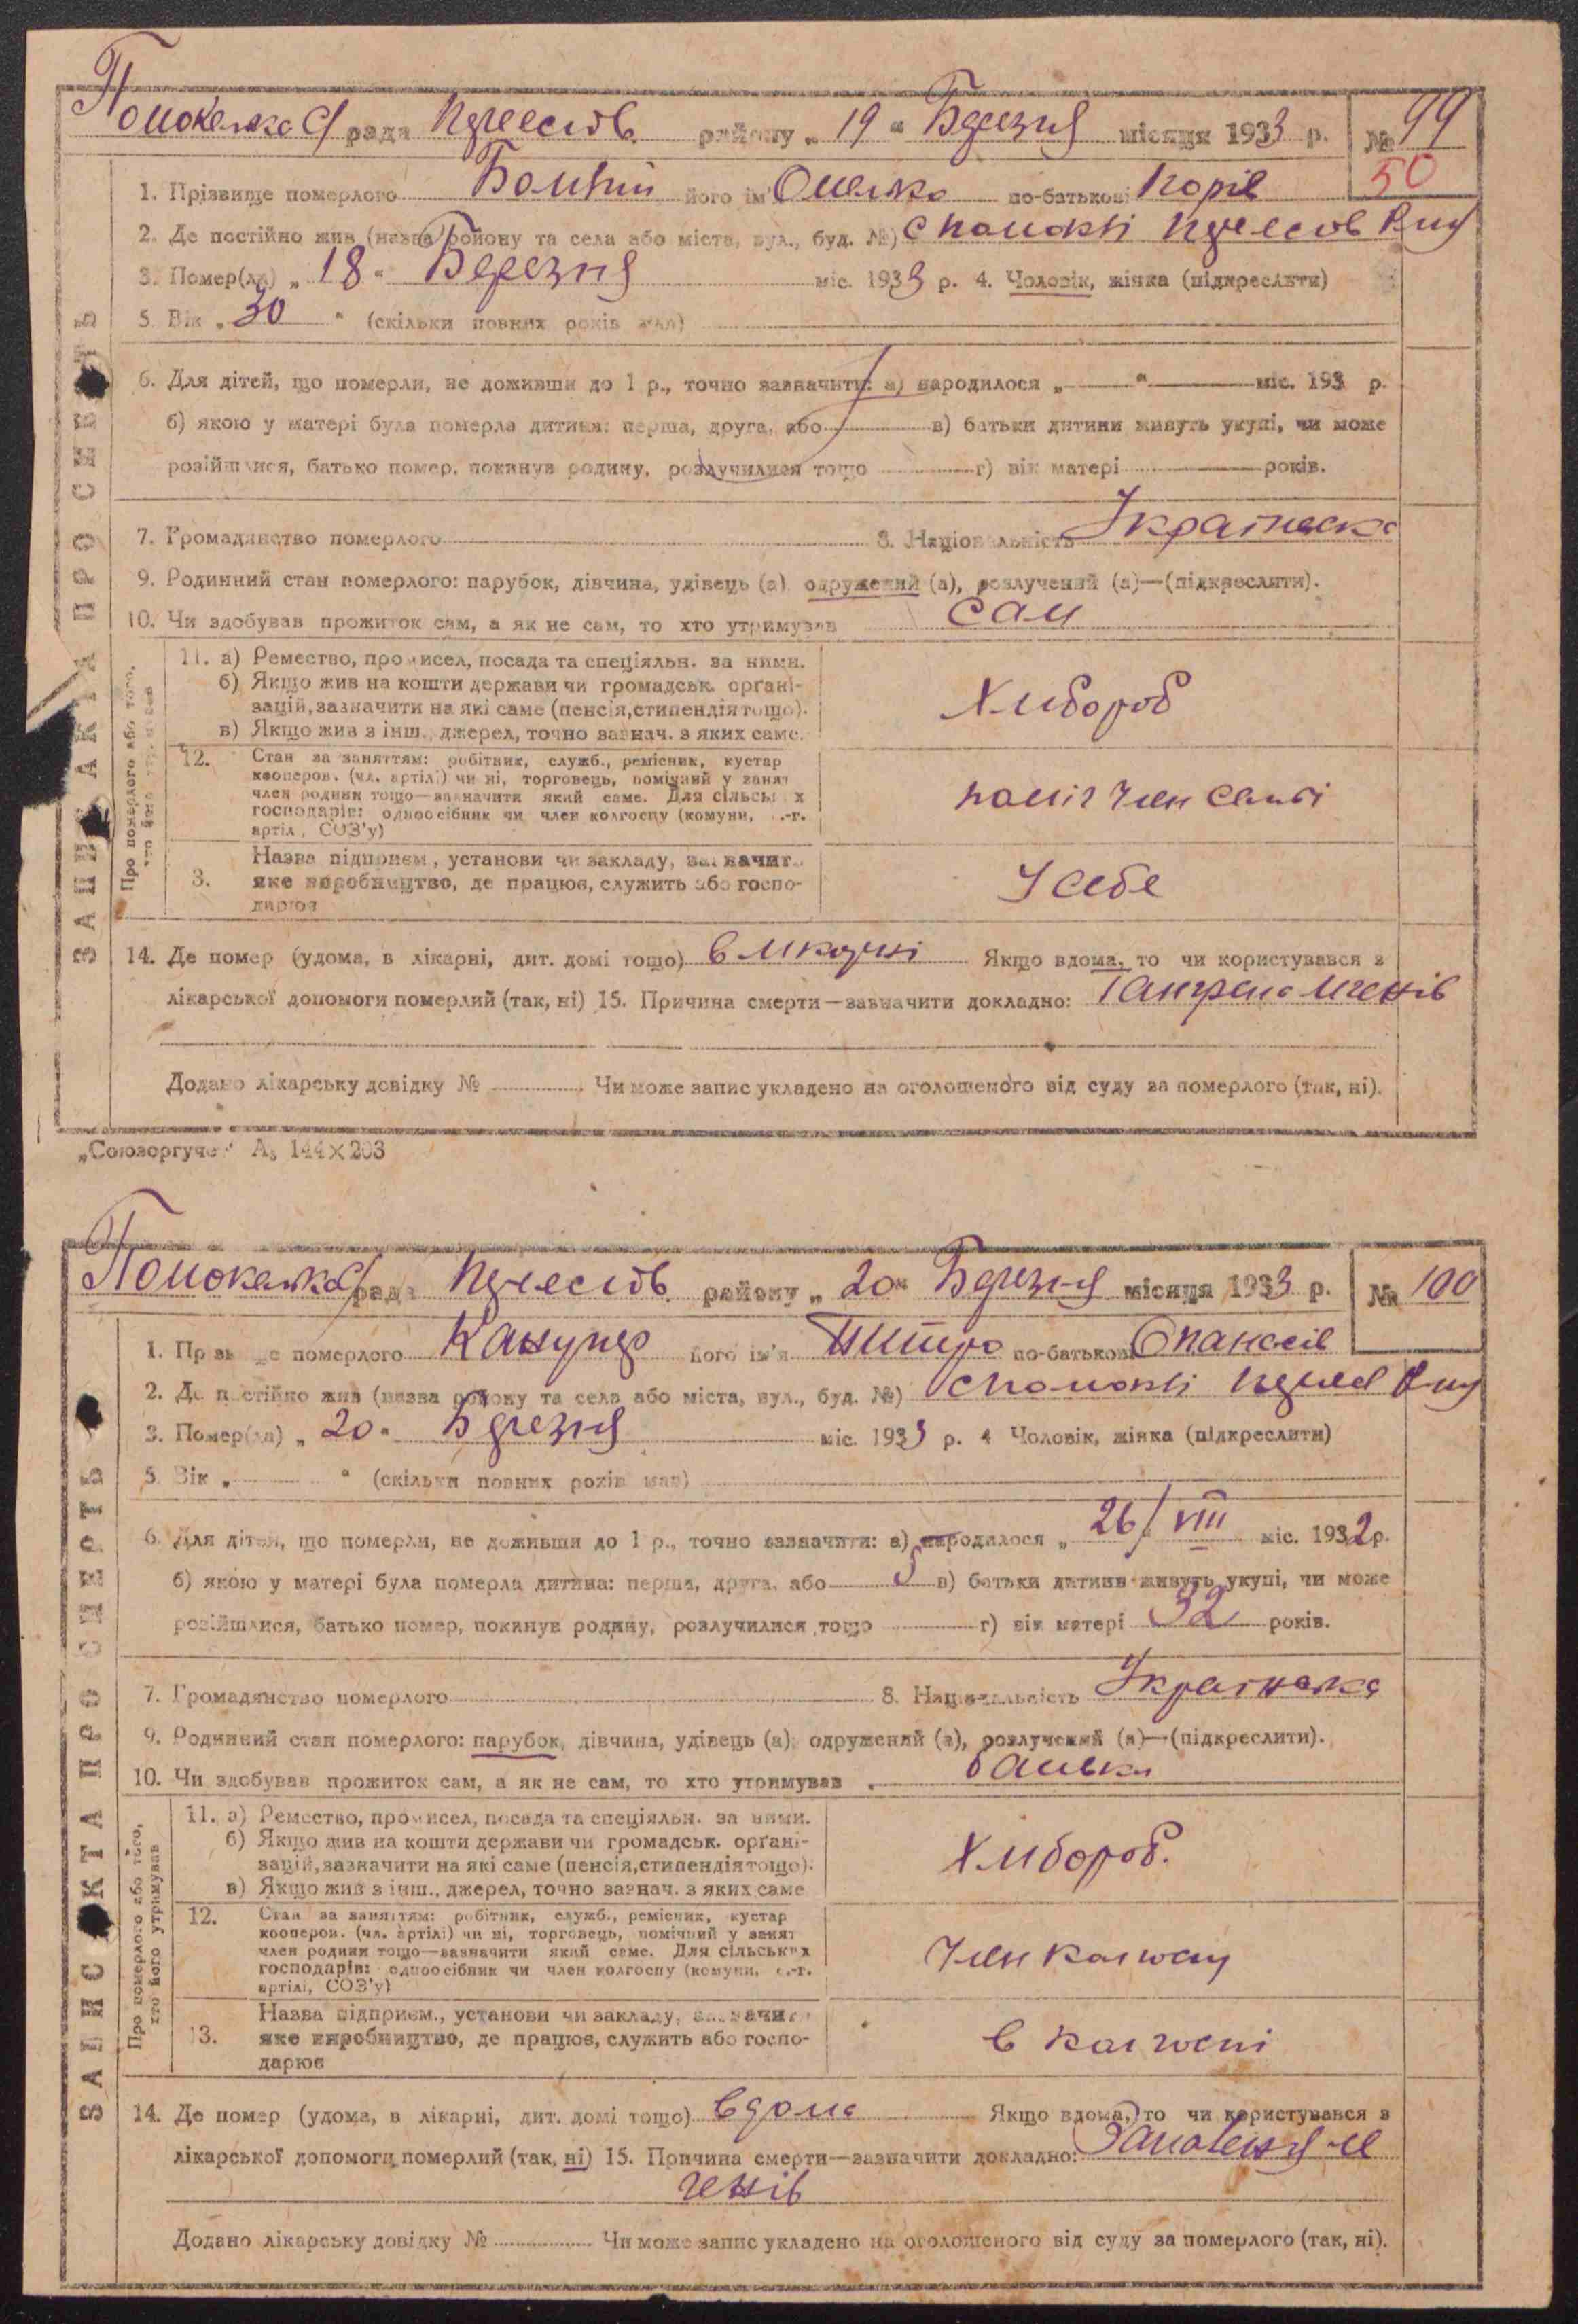 рада району „ 19 “ Березня місяця 1933 р. № 99
50
1. Прізвище померлого його ім'я по-батькові
2. Де постійно жив (назва району та села або міста, вул., буд. №)
3. Помер(ла) „ 18 “ Березня міс. 1933 р. 4. Чоловік, жінка (підкреслити)
5. Вік „ 30 “ (скільки повних років мав)
6. Для дітей, що померли, не доживши до 1 р., точно зазначити: а) народилося „ “ міс. 193 р.
б) якою у матері була померла дитина: перша, друга, або в) батьки дитини живуть укупі, чи може
розійшлися, батько помер, покинув родину, розлучилися тощо г) вік матері років.
7. Громадянство померлого 8. Національність
9. Родинний стан померлого: парубок, дівчина, удівець (а), одружений (а), розлучений (а)—(підкреслити).
10. Чи здобував прожиток сам, а як не сам, то хто утримував сам
ЗАПИС АКТА ПРО СМЕРТЬ
Про померлого або того, хто його утримував
11. а) Ремество, промисел, посада та спеціяльн. за ними.
б) Якщо жив на кошти держави чи громадськ. органі-
зацій, зазначити на які саме (пенсія, стипендія тощо).
в) Якщо жив з інш., джерел, точно зазнач. з яких саме.
Хлібороб
12. Стан за заняттям: робітник, служб., ремісник, кустар
кооперов. (чл. артілі) чи ні, торговець, помічний у занят
член родини тощо—зазначити який саме. Для сільських
господарів: одноосібник чи член колгоспу (комуни, с.-г.
артілі, СОЗ'у)
член
13. Назва підприєм., установи чи закладу, зазначити
яке виробництво, де працює, служить або госпо-
дарює
У себе
14. Де помер (удома, в лікарні, дит. домі тощо) в лікарні Якщо вдома, то чи користувався з
лікарської допомоги померлий (так, ні) 15. Причина смерти—зазначити докладно: Гангрена легенів
Додано лікарську довідку № Чи може запис укладено на оголошеного від суду за померлого (так, ні).
„Союзоргучет“ А₅ 144×203
рада району „ 20 “ Березня місяця 1933 р. № 100
1. Прізвище померлого його ім'я Дмитро по-батькові Опанасів
2. Де постійно жив (назва району та села або міста, вул., буд. №)
3. Помер(ла) „ 20 “ Березня міс. 1933 р. 4 Чоловік, жінка (підкреслити)
5. Вік „ “ (скільки повних років мав)
6. Для дітей, що померли, не доживши до 1 р., точно зазначити: а) народилося „ 26/VIII міс. 1932 р.
б) якою у матері була померла дитина: перша, друга, або 5 в) батьки дитини живуть укупі, чи може
розійшлися, батько помер, покинув родину, розлучилися тощо г) вік матері 32 років.
7. Громадянство померлого 8. Національність
9. Родинний стан померлого: парубок, дівчина, удівець (а), одружений (а), розлучений (а)—(підкреслити).
10. Чи здобував прожиток сам, а як не сам, то хто утримував
ЗАПИС АКТА ПРО СМЕРТЬ
Про померлого або того, хто його утримував
11. а) Ремество, промисел, посада та спеціяльн. за ними.
б) Якщо жив на кошти держави чи громадськ. органі-
зацій, зазначити на які саме (пенсія, стипендія тощо).
в) Якщо жив з інш., джерел, точно зазнач. з яких саме
Хлібороб.
12. Стан за заняттям: робітник, служб., ремісник, кустар
кооперов. (чл. артілі) чи ні, торговець, помічний у занят
член родини тощо—зазначити який саме. Для сільських
господарів: одноосібник чи член колгоспу (комуни, с.-г.
артілі, СОЗ'у)
Член колгоспу
13. Назва підприєм., установи чи закладу, зазначити
яке виробництво, де працює, служить або госпо-
дарює
в колгоспі
14. Де помер (удома, в лікарні, дит. домі тощо) вдома Якщо вдома, то чи користувався з
лікарської допомоги померлий (так, ні) 15. Причина смерти—зазначити докладно: Запалення ле
генів
Додано лікарську довідку № Чи може запис укладено на оголошеного від суду за померлого (так, ні).